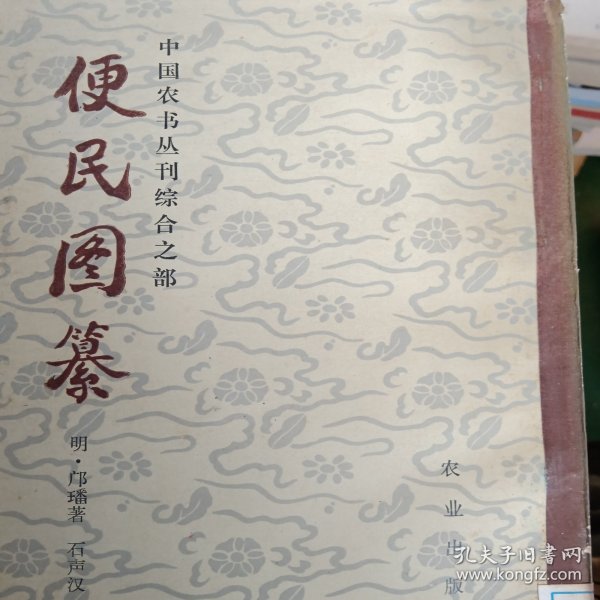 中国农书丛刊综合之部
便民图纂
明·邝璠著 石声汉
农业出版
孔夫子旧书网
www.kongfz.com